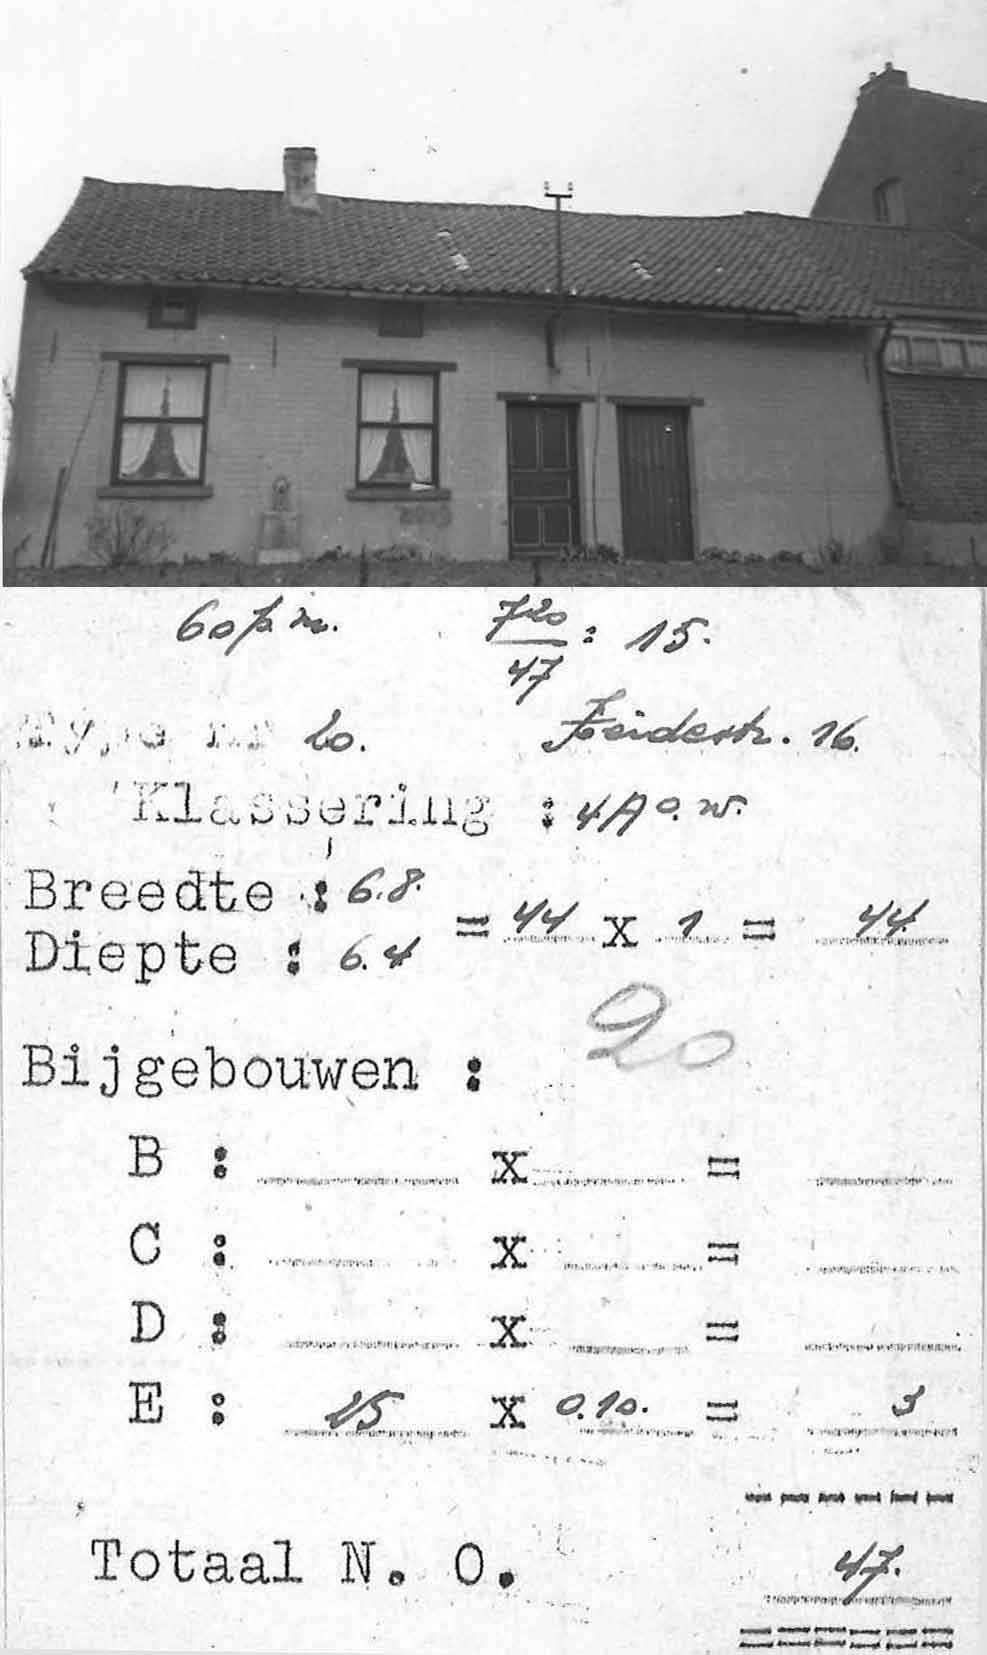 60 p.m. 720/47 : 15.
Type nr 20. Heidestr. 16.
Klassering : 4A o.w.
Breedte : 6.8.
= 44 x 1 = 44
Diepte : 6.4
20
Bijgebouwen :
B : x =
C : x =
D : x =
E : 25 x 0.10. = 3
Totaal N. O. 47.